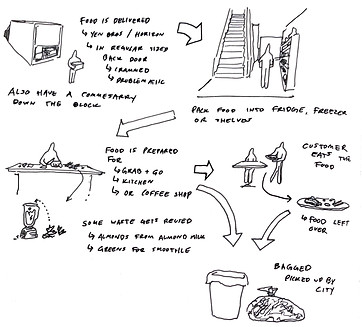 FOOD IS DELIVERED
↳ YEN BROS / HORIZON
↳ IN REGULAR SIZED
BACK DOOR
↳ CRAMMED
↳ PROBLEMATIC
ALSO HAVE A COMMISSARY
DOWN THE BLOCK
PACK FOOD INTO FRIDGE, FREEZER
OR SHELVES
FOOD IS PREPARED
FOR
↳ GRAB + GO
↳ KITCHEN
↳ OR COFFEE SHOP
CUSTOMER
EATS THE
FOOD
↳ FOOD LEFT
OVER
SOME WASTE GETS REUSED
↳ ALMONDS FROM ALMOND MILK
↳ GREENS FOR SMOOTHIE
BAGGED
PICKED UP BY
CITY